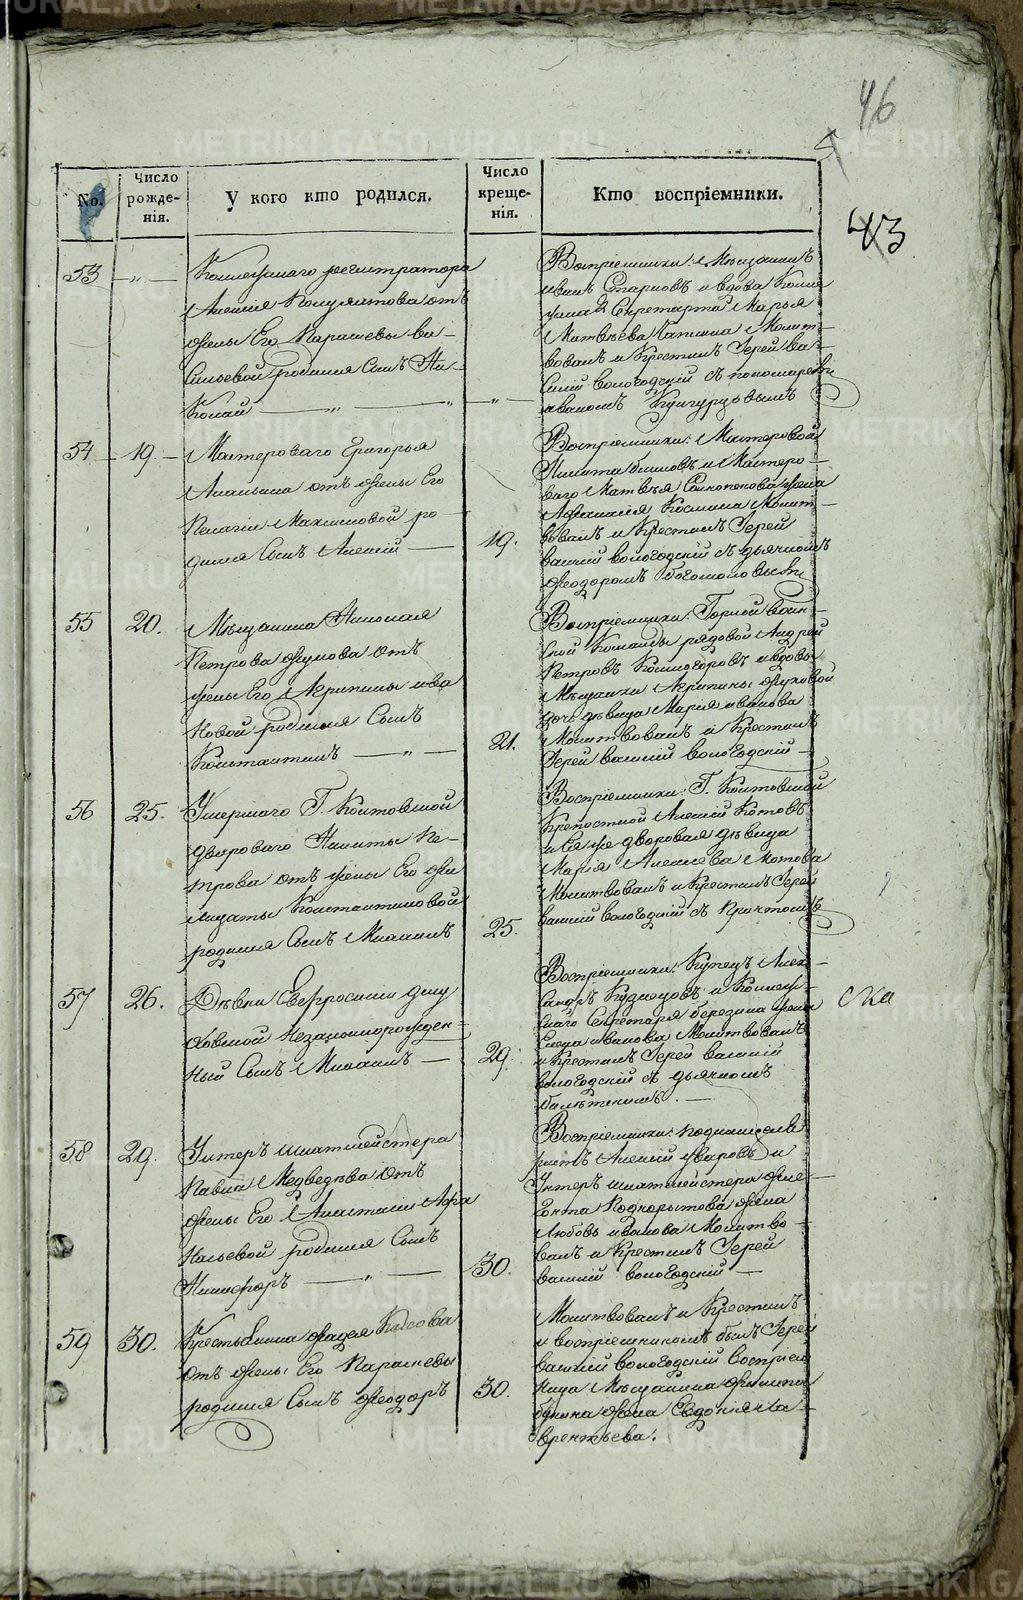 46
43
No.
Число рожденія.
У кого кто родился.
Число крещенія.
Кто воспріемники.
53 — „ —
Коллежскаго регистратора
Алексія отъ
жены Его Парасковьи Ва-
сильевой родился Сынъ Ни-
колай — „ — „
— „ —
Воспріемники: Мѣщанинъ
Иванъ Старковъ и вдова Колле
Секретарша Марья
Матвѣева Молит-
вовалъ и Крестилъ Іерей Ва-
силій Вологодскій съ пономаремъ
Иваномъ
54 — 19. —
Мастероваго Григорья
Ананьина отъ жены Его
Пелагіи Максимовой ро-
дился Сынъ Алексій —
19.
Воспріемники: Мастеровой
Никита и Мастеро-
ваго Матвѣя жена
Космина Молит-
вовалъ и Крестилъ Іерей
Василій Вологодскій съ дьячкомъ
Ѳеодоромъ Богомоловымъ
55
20.
Мѣщанина Николая
Петрова отъ
жены Его Агрипины Ива
новой родился Сынъ
Константинъ — „ —
21.
Воспріемники: Горной Воин-
ской Команды рядовой Андрей
Петровъ и вдовы
Мѣщанки Агрипины
дочь дѣвица Марія Иванова
Молитвовалъ и Крестилъ
Іерей Василій Вологодскій —
56
25.
Умершаго Г. Контовтовой
двороваго Никиты Пе-
трова отъ жены Его Фи
лицаты Константиновой
родился Сынъ Михаилъ
25.
Воспріемники: Г.
Крепостной Алексій Котовъ
и Ея же дворовая дѣвица
Марія Алексѣева Котова
Молитвовалъ и Крестилъ Іерей
Василій Вологодскій съ Причтомъ
57
26.
Дѣвки Евфросиніи
Незаконнорожден-
ный Сынъ Михаилъ —
29.
Воспріемники: Купецъ Алек-
сандръ Кузнецовъ и Коллеж-
скаго Секретаря Березина жена
Иванова Молитвовалъ
и Крестилъ Іерей Василій
Вологодскій съ дьячкомъ
58
29.
Унтеръ Шихтмейстера
Павла Медведева отъ
жены Его Анастасіи Афа
насьевой родился Сынъ
Никифоръ — „ —
30.
Воспріемники: Подканцеля
ристъ Алексій Уваровъ и
Унтеръ Шихтмейстера Ѳе-
октиста жена
Любовь Иванова Молитво-
валъ и Крестилъ Іерей
Василій Вологодскій —
59
30.
Крестьянина Фадея
отъ жены Его Парасковьи
родился Сынъ Ѳеодоръ
30.
Молитвовалъ и Крестилъ
и воспріемникомъ былъ Іерей
Василій Вологодскій Воспріем
ница Мѣщанина Филиппа
жена Евдокія Ла-
врентьева.